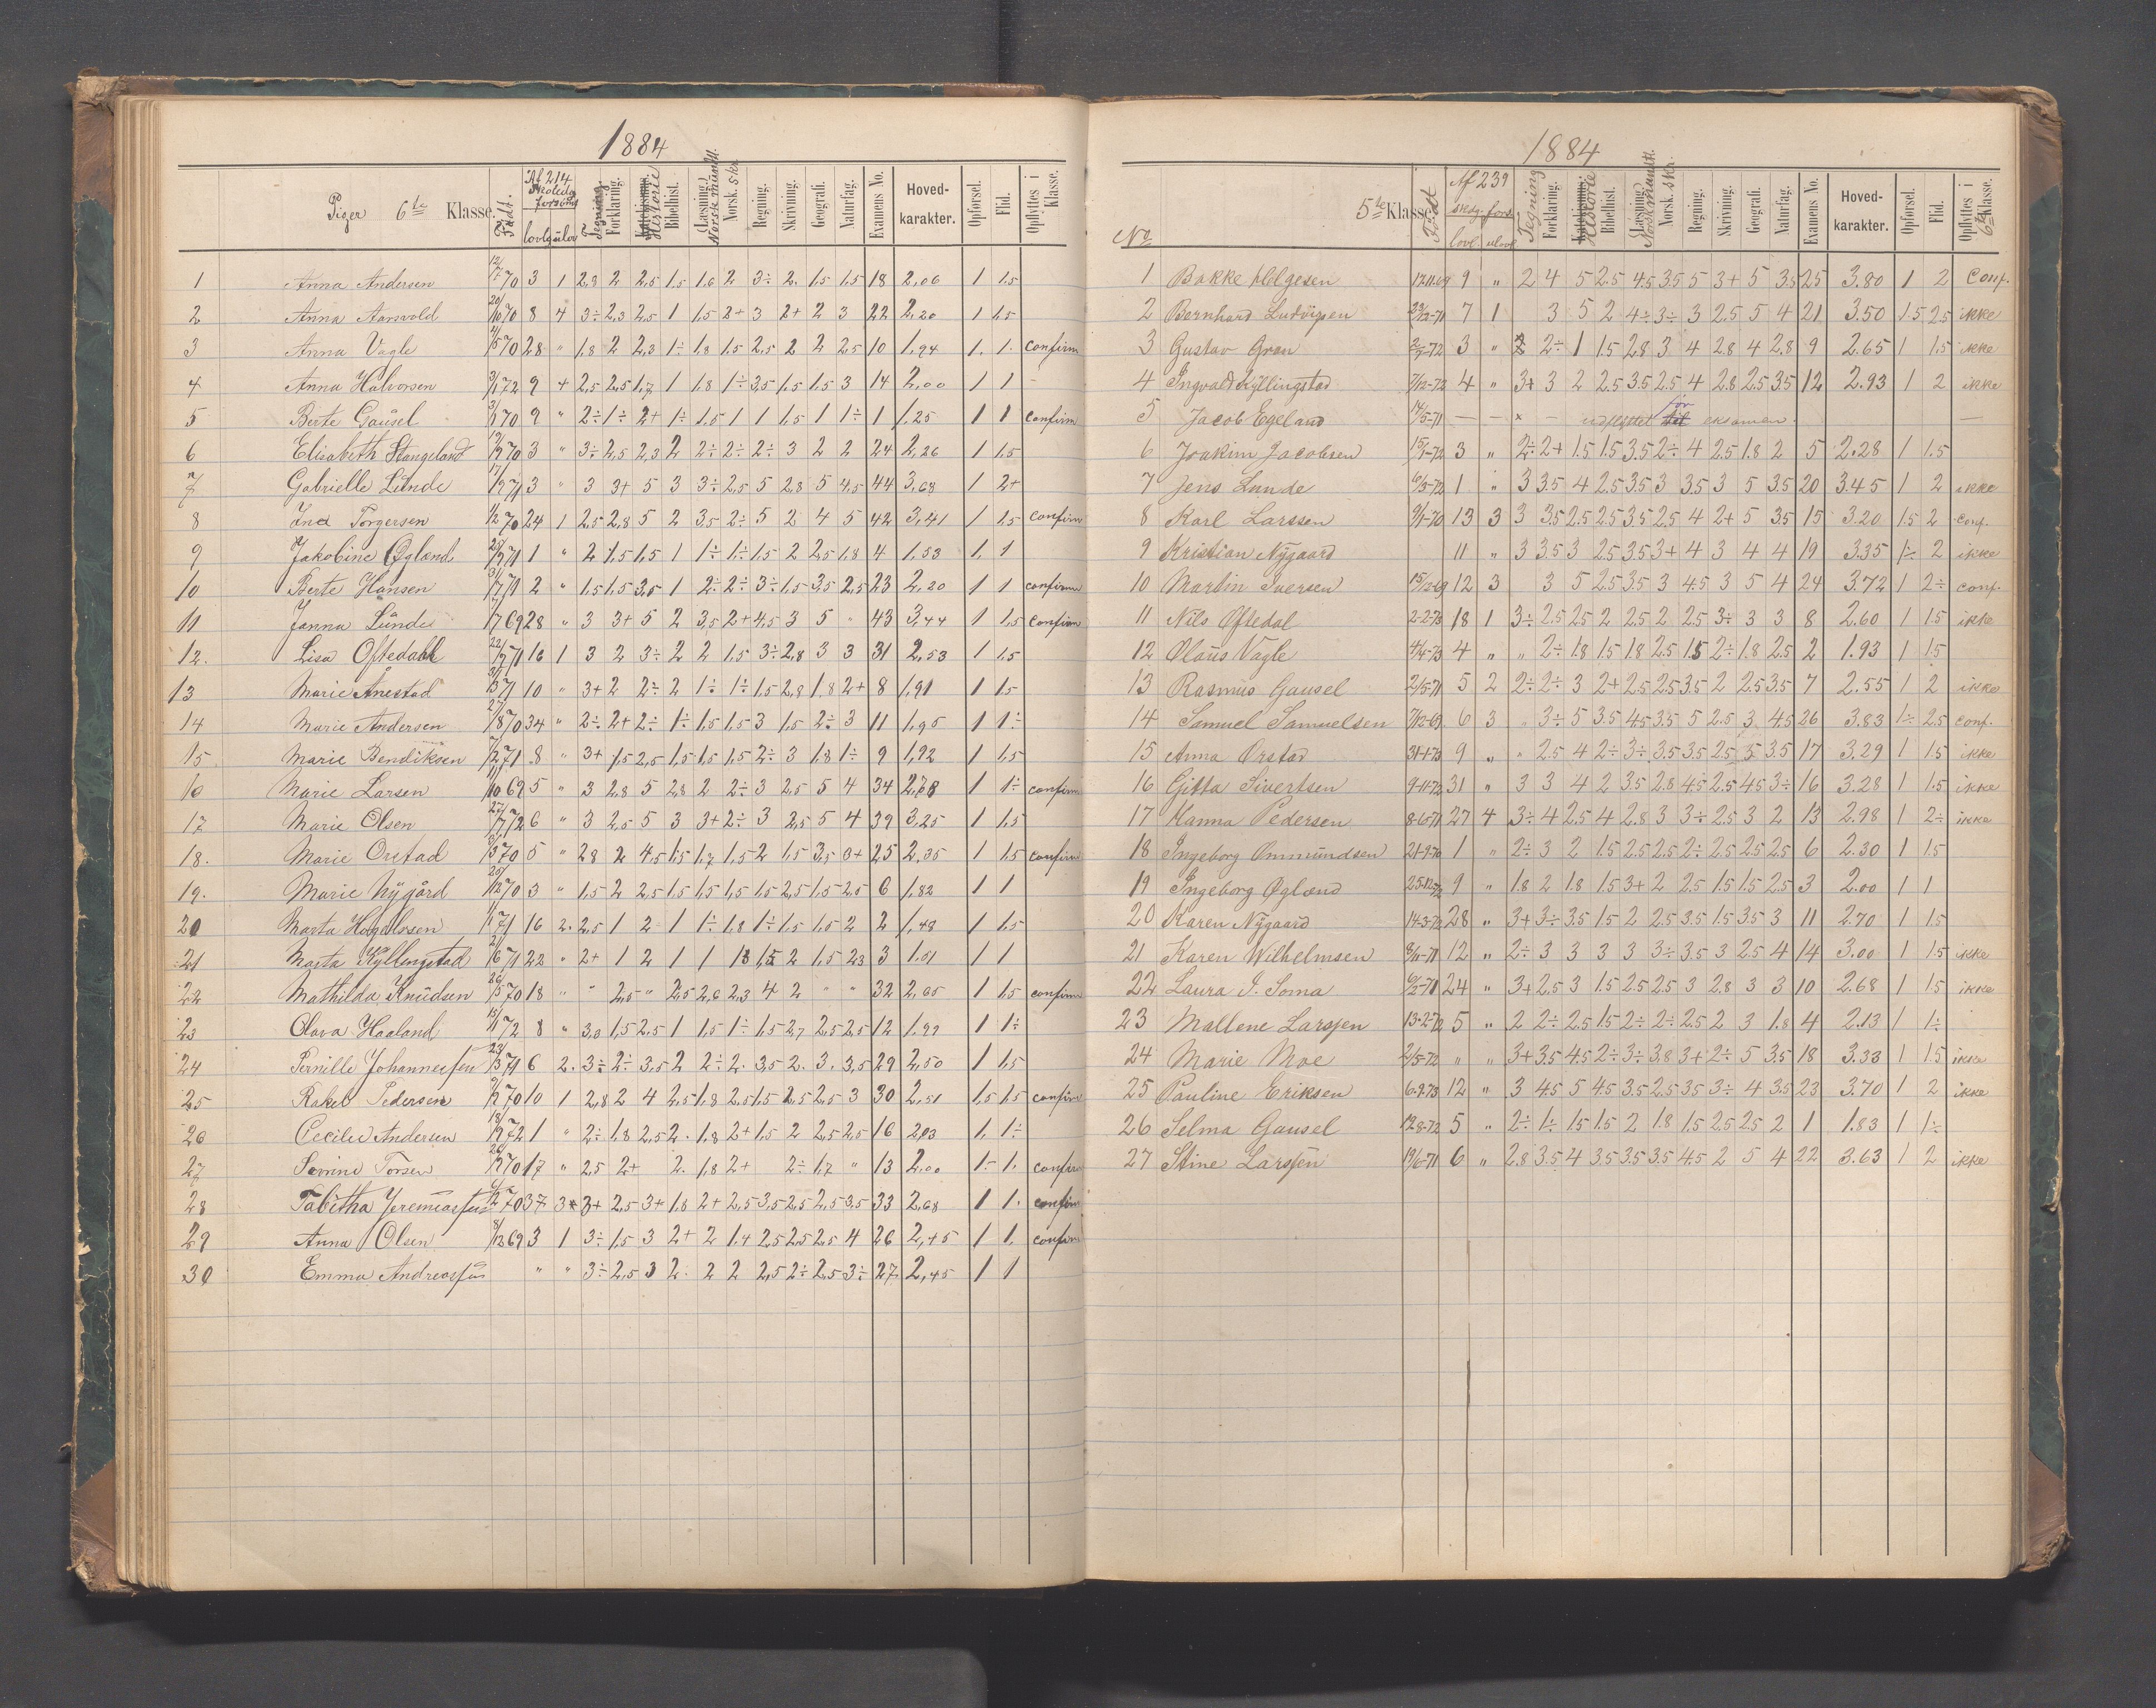 1884
Piger 6te Klasse. Født. Af 214 skoledg forsømg lovl. gulov Tegning. Forklaring. Historie Bibelhist. (Læsning.) Norsk mundtl. Norsk. skr. Regning. Skrivning. Geografi. Naturfag. Examens No. Hoved-karakter. Opførsel. Flid. Opflyttes i Klasse.
1 Anna Andersen 12/7 70 3 1 2,8 2 2,5 1,5 1,6 2 3÷ 2. 1,5 1,5 18 2,06 1 1,5
2 Anna Aarsvold 20/10 70 8 4 3÷ 2,3 2,5 1 1,5 2+ 3 2+ 2 3 22 2,20 1 1,5
3 Anna Vagle 4/5 70 28 " 1,8 2 2,3 1÷ 1,8 1,5 2,5 2 2 2,5 10 1,94 1. 1. confirm
4 Anna Halvorsen 3/1 72 9 + 2,5 2,5 1,7 1 1,8 1÷ 3,5 1,5 1,5 3 14 2,00 1 1 -
5 Berte Gausel 3/1 70 9 " 2÷ 1÷ 2+ 1÷ 1,5 1 1 1,5 1 1÷ 1 1,25 1 1 confirm
6 Elisabeth Stangeland 19/9 70 3 " 3÷ 2,5 2,3 2 2÷ 2÷ 2÷ 3 2 2 24 2,26 1 1,5
7 Gabrielle Lunde 17/9 71 3 " 3 3+ 5 3 3÷ 2,5 5 2,8 5 4,5 44 3,68 1 2+
8 Ina Torgersen 1/2 70 24 1 2,5 2,8 5 2 3,5 2÷ 5 2 4 5 42 3,41 1 1,5 confirm
9 Jakobine Øgland 25/9 71 1 " 2 1,5 1,5 1 1÷ 1÷ 1,5 2 2,5 1,8 4 1,53 1, 1
10 Berte Hansen 31/7 71 2 " 1,5 1,5 3,5 1 2÷ 2÷ 3÷ 1,5 3,5 2,5 23 2,20 1 1 confirm
11 Janna Lunde 1/7 69 28 " 3 3+ 5 2 3,5 2+ 4,5 3 5 " 43 3,44 1 1,5 confirm
12. Lisa Oftedahl 22/9 71 16 1 3 2 3÷ 2 2 1,5 3÷ 2,8 3 3 31 2,53 1 1,5
13 Marie Anestad 31/3 71 10 " 3+ 2 2÷ 2 1÷ 1÷ 1,5 2,8 1,8 2+ 8 1,91 1 1,5
14 Marie Andersen 27/8 70 34 " 2÷ 2+ 2÷ 1÷ 1,5 1,5 3 1,5 2÷ 3 11 1,95 1 1÷
15. Marie Bendiksen 7/2 71 8 " 3+ 1,5 2,5 1,5 1,5 1,5 2÷ 3 1,8 1÷ 9 1,92 1 1,5
16 Marie Larsen 11/10 69 5 " 3 2,8 5 2,8 2 2÷ 3 2,5 5 4 34 2,78 1 1÷ confirm
17 Marie Olsen 27/7 72 6 " 3 2,5 5 3 3+ 2÷ 3 2,5 5 4 39 3,25 1 1,5
18. Marie Orstad 9/3 70 5 " 2,8 2 4,5 1,5 1,7 1,5 2 1,5 3,5 3+ 25 2,35 1 1,5 confirm
19. Marie Nygård 25/12 70 3 " 1,5 2 2,5 1,5 1,5 1,5 1,5 2,5 1,5 2,5 6 1,82 1 1
20 Marta Hognlesen 1/1 71 16 2. 2,5 1 2 1 1÷ 1,8 1÷ 1,5 1,5 2 2 1,48 1 1,5
21 Marta Kyllingstad 2/6 71 22 " 2+ 1 2 1 1 1,8 1,5 2 1,5 2,3 3 1,51 1 1
22 Mathilda Knudsen 26/5 70 18 " " 2,5 " 2,5 2,6 2,3 4 2 " " 32 2,65 1 1,5 confirm
23 Olava Haaland 15/1 72 8 " 3,0 1,5 2,5 1 1,5 1÷ 1,5 2,7 2,5 2,5 12 1,97 1 1÷
24 Pernille Johannessen 23/3 71 6 2. 3÷ 2÷ 3,5 2 2÷ 2. 3,5 2. 3. 3,5 29 2,50 1 1,5
25 Rakel Pedersen 9/2 70 10 1 2,8 2 4 2,5 1,8 2,5 1,5 2,5 2,5 3 30 2,51 1,5 1,5 confirm
26 Cecilie Andersen 18/9 72 1 " 2÷ 1,8 2,5 2. 1,8 2+ 1,5 2 2,5 2,5 16 2,03 1, 1÷
27 Serine Torsen 26/2 70 17 " 2,5 2+ 2. 1,8 2+ 2÷ 1,7 " 13 2,00 1- 1. confirm
28 Tabitha Jeremiassen 4/2 70 37 3 3+ 2,5 3+ 1,8 2+ 2,5 3,5 2,5 2,5 3,5 33 2,68 1 1. confirm
29 Anna Olsen 8/12 69 3 1 3÷ 1,5 3 2+ 2 1,4 2,5 2,5 2,5 4 26 2,45 1 1, confirm
30 Emma Andreassen " " 3÷ 2,5 3 2. 2 2 2,5 2÷ 2,5 3÷ 27 2,45 1 1
1884
No 5te Klasse Født Af 239 skdg. fors. lovl. ulovl. Tegning Forklaring. Historie Bibelhist. (Læsning.) Norsk mundtl. Norsk. skr. Regning. Skrivning. Geografi. Naturfag. Examens No. Hoved-karakter. Opførsel. Flid. Opflyttes i 6te Klasse.
1 Bakke Helgesen 17-11-69 9 " 2 4 5 2.5 4.5 3.5 5 3+ 5 3.5 25 3.80 1 2 Conf.
2 Bernhard Ludvigsen 29/12-71 7 1 3 5 2 4÷ 3÷ 3 2.5 5 4 21 3.50 1.5 2.5 ikke
3 Gustav Gran 2/7-72 3 " 2÷ 1 1.5 2.8 3 4 2.8 4 2.8 9 2.65 1 1.5 ikke
4 Ingvald Kyllingstad 7/12-72 4 " 3+ 3 2 2.5 3.5 2.5 4 2.8 2.5 3.5 12 2.93 1 2 ikke
5 Jacob Egeland 14/5-71 — — × — udflyttet før eksamen. —
6 Joakim Jacobsen 15/1-72 3 " 2÷ 2+ 1.5 1.5 3.5 2÷ 4 2.5 1.8 2 5 2.28 1 1.5
7 Jens Lunde 6/3-72 1 " 3 3.5 4 2.5 3.5 3 3.5 3 5 3.5 20 3.45 1 2 ikke
8 Karl Larssen 9/1-70 13 3 3 3.5 2.5 2.5 3.5 2.5 4 2+ 5 3.5 15 3.20 1.5 2 conf.
9 Kristian Nygaard 11 " 3 3.5 3 2.5 3.5 3+ 4 3 4 4 19 3.35 1÷ 2 ikke
10 Martin Iversen 15/12-69 12 3 3 5 2.5 3.5 3 4.5 3 5 4 24 3.72 1 2÷ conf.
11 Nils Oftedal 2-2-73 18 1 3÷ 2.5 2.5 2 2.5 2 2.5 3÷ 3 3 8 2.60 1 1.5 ikke
12 Olaus Vagle 4/4-73 4 " " 2÷ 1.8 1.5 1.8 2.5 1.5 2÷ 1.8 2.5 2 1.93 1 1.5
13 Rasmus Gausel 2/5-71 5 2 2÷ 2÷ 3 2+ 2.5 2.5 3.5 2 2.5 3.5 7 2.55 1 2 ikke
14 Samuel Samuelsen 7/12-69 6 3 " 3÷ 5 3.5 4.5 3.5 5 2.5 3 4.5 26 3.83 1÷ 2.5 conf.
15 Anna Orstad 31-1-73 9 " " 2.5 4 2÷ 3÷ 3.5 3.5 2.5 5 3.5 17 3.29 1 1.5 ikke
16 Gitta Sivertsen 9-11-72 31 " 3 3 4 2 3.5 2.8 4.5 2.5 4.5 3÷ 16 3.28 1 1.5 ikke
17 Hanna Pedersen 8-6-71 27 4 3÷ 4 2.5 4 2.8 3 3÷ 2.5 3 2 13 2.98 1 2÷ ikke
18 Ingeborg Ommundsen 21-9-70 1 " 2÷ 3 2 1.5 2.5 2.5 2÷ 2.5 2.5 2.5 6 2.30 1 1.5
19 Ingeborg Øglænd 25-12-72 9 " 1.8 2 1.8 1.5 3+ 2 2.5 1.5 1.5 2.5 3 2.00 1 1
20 Karen Nygaard 14-3-72 28 " 3+ 3÷ 3.5 1.5 2 2.5 3.5 1.5 3.5 3 11 2.70 1 1.5
21 Karen Wilhelmsen 8/11-71 12 " 2÷ 3 3 3 3 3÷ 3.5 3 2.5 4 14 3.00 1 1.5 ikke
22 Laura J. Soma 6/2-71 24 " 3+ 2.5 3 1.5 2.5 2.5 3 2.8 3 3 10 2.68 1 1.5 ikke
23 Mallene Larssen 13-2-72 5 " 2 2÷ 2.5 1.5 2÷ 2÷ 2.5 2 3 1.8 4 2.13 1 1÷
24 Marie Moe 2/5-72 " " 3+ 3.5 4.5 2÷ 3÷ 3.8 3+ 2÷ 5 3.5 18 3.33 1 1.5 ikke
25 Pauline Eriksen 6-9-73 12 " 3 4.5 5 4.5 3.5 2.5 3.5 3÷ 4 3.5 23 3.70 1 2 ikke
26 Selma Gausel 12-8-72 5 " 2÷ 1÷ 1.5 1.5 2 1.8 1.5 2.5 2.5 2 1 1.83 1 1÷
27 Stine Larssen 19/6-71 6 " 2.8 3.5 4 3.5 3.5 3.5 4.5 2 5 4 22 3.63 1 2 ikke